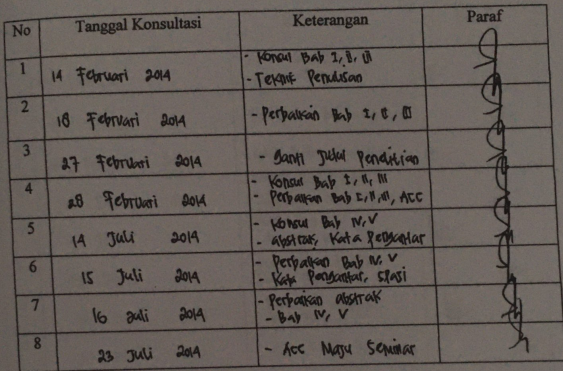 No Tanggal Konsultasi Keterangan Paraf
1 14 Februari 2014 - Konsul Bab I, II, III
- Teknik Penulisan
2 18 Februari 2014 - Perbaikan Bab I, II, III
3 27 Februari 2014 - Ganti Judul Penelitian
4 28 Februari 2014 - Konsul Bab I, II, III
- Perbaikan Bab I, II, III, ACC
5 14 Juli 2014 - Konsul Bab IV, V
- abstrak, Kata Pengantar
6 15 Juli 2014 - Perbaikan Bab IV, V
- Kata Pengantar,
7 16 Juli 2014 - Perbaikan abstrak
- Bab IV, V
8 23 Juli 2014 - Acc Maju Seminar